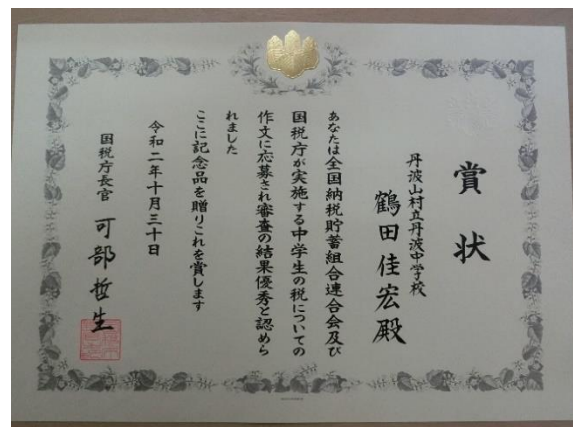 賞状
丹波山村立丹波中学校
鶴田佳宏殿
あなたは全国納税貯蓄組合連合会及び
国税庁が実施する中学生の税についての
作文に応募され審査の結果優秀と認めら
れました
ここに記念品を贈りこれを賞します
令和二年十月三十日
国税庁長官 可部哲生